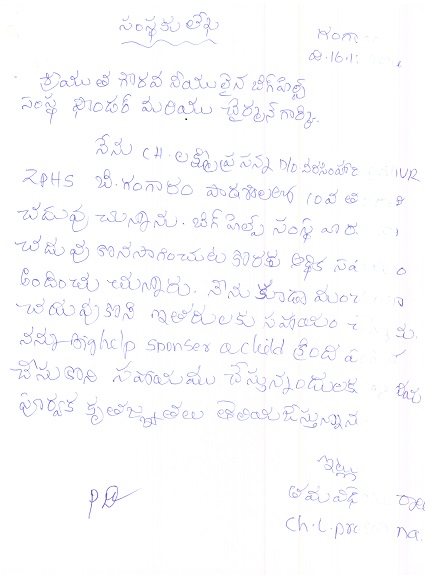 సంస్థకు లేఖ
గంగా
ది.16.1
శ్రీయుత గౌరవనీయులైన బిగ్‌హెల్ప్
సంస్థ ఫౌండర్ మరియు ఛైర్మన్ గార్కి.
నేను CH. లక్ష్మీప్రసన్న D/o వీరసింహా
ZPHS బి.గంగారం పాఠశాలలో 10వ త
చదువు చున్నాను. బిగ్ హెల్ప్ సంస్థ
చదువు కొనసాగించుట కొరకు ఆర్థిక సహ
అందించు చున్నారు. నేను కూడా మంచ
చదువుకొని ఇతరులకు సహాయం
నన్ను Bighelp sponser a child క్రింద
చేసుకొని సహాయము చేస్తున్నందులకు
పూర్వక కృతజ్ఞతలు తెలియజేస్తున్నాన
ఇట్లు
తమ విధే
Ch.L.pr na.